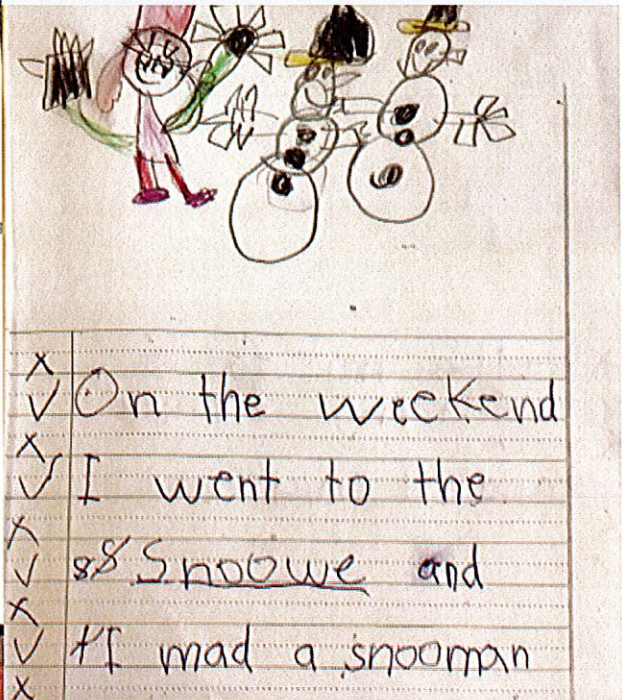 x
✓ On the weekend
x
✓ I went to the
x
✓ s8 Snoowe and
x
✓ tI mad a snooman
x